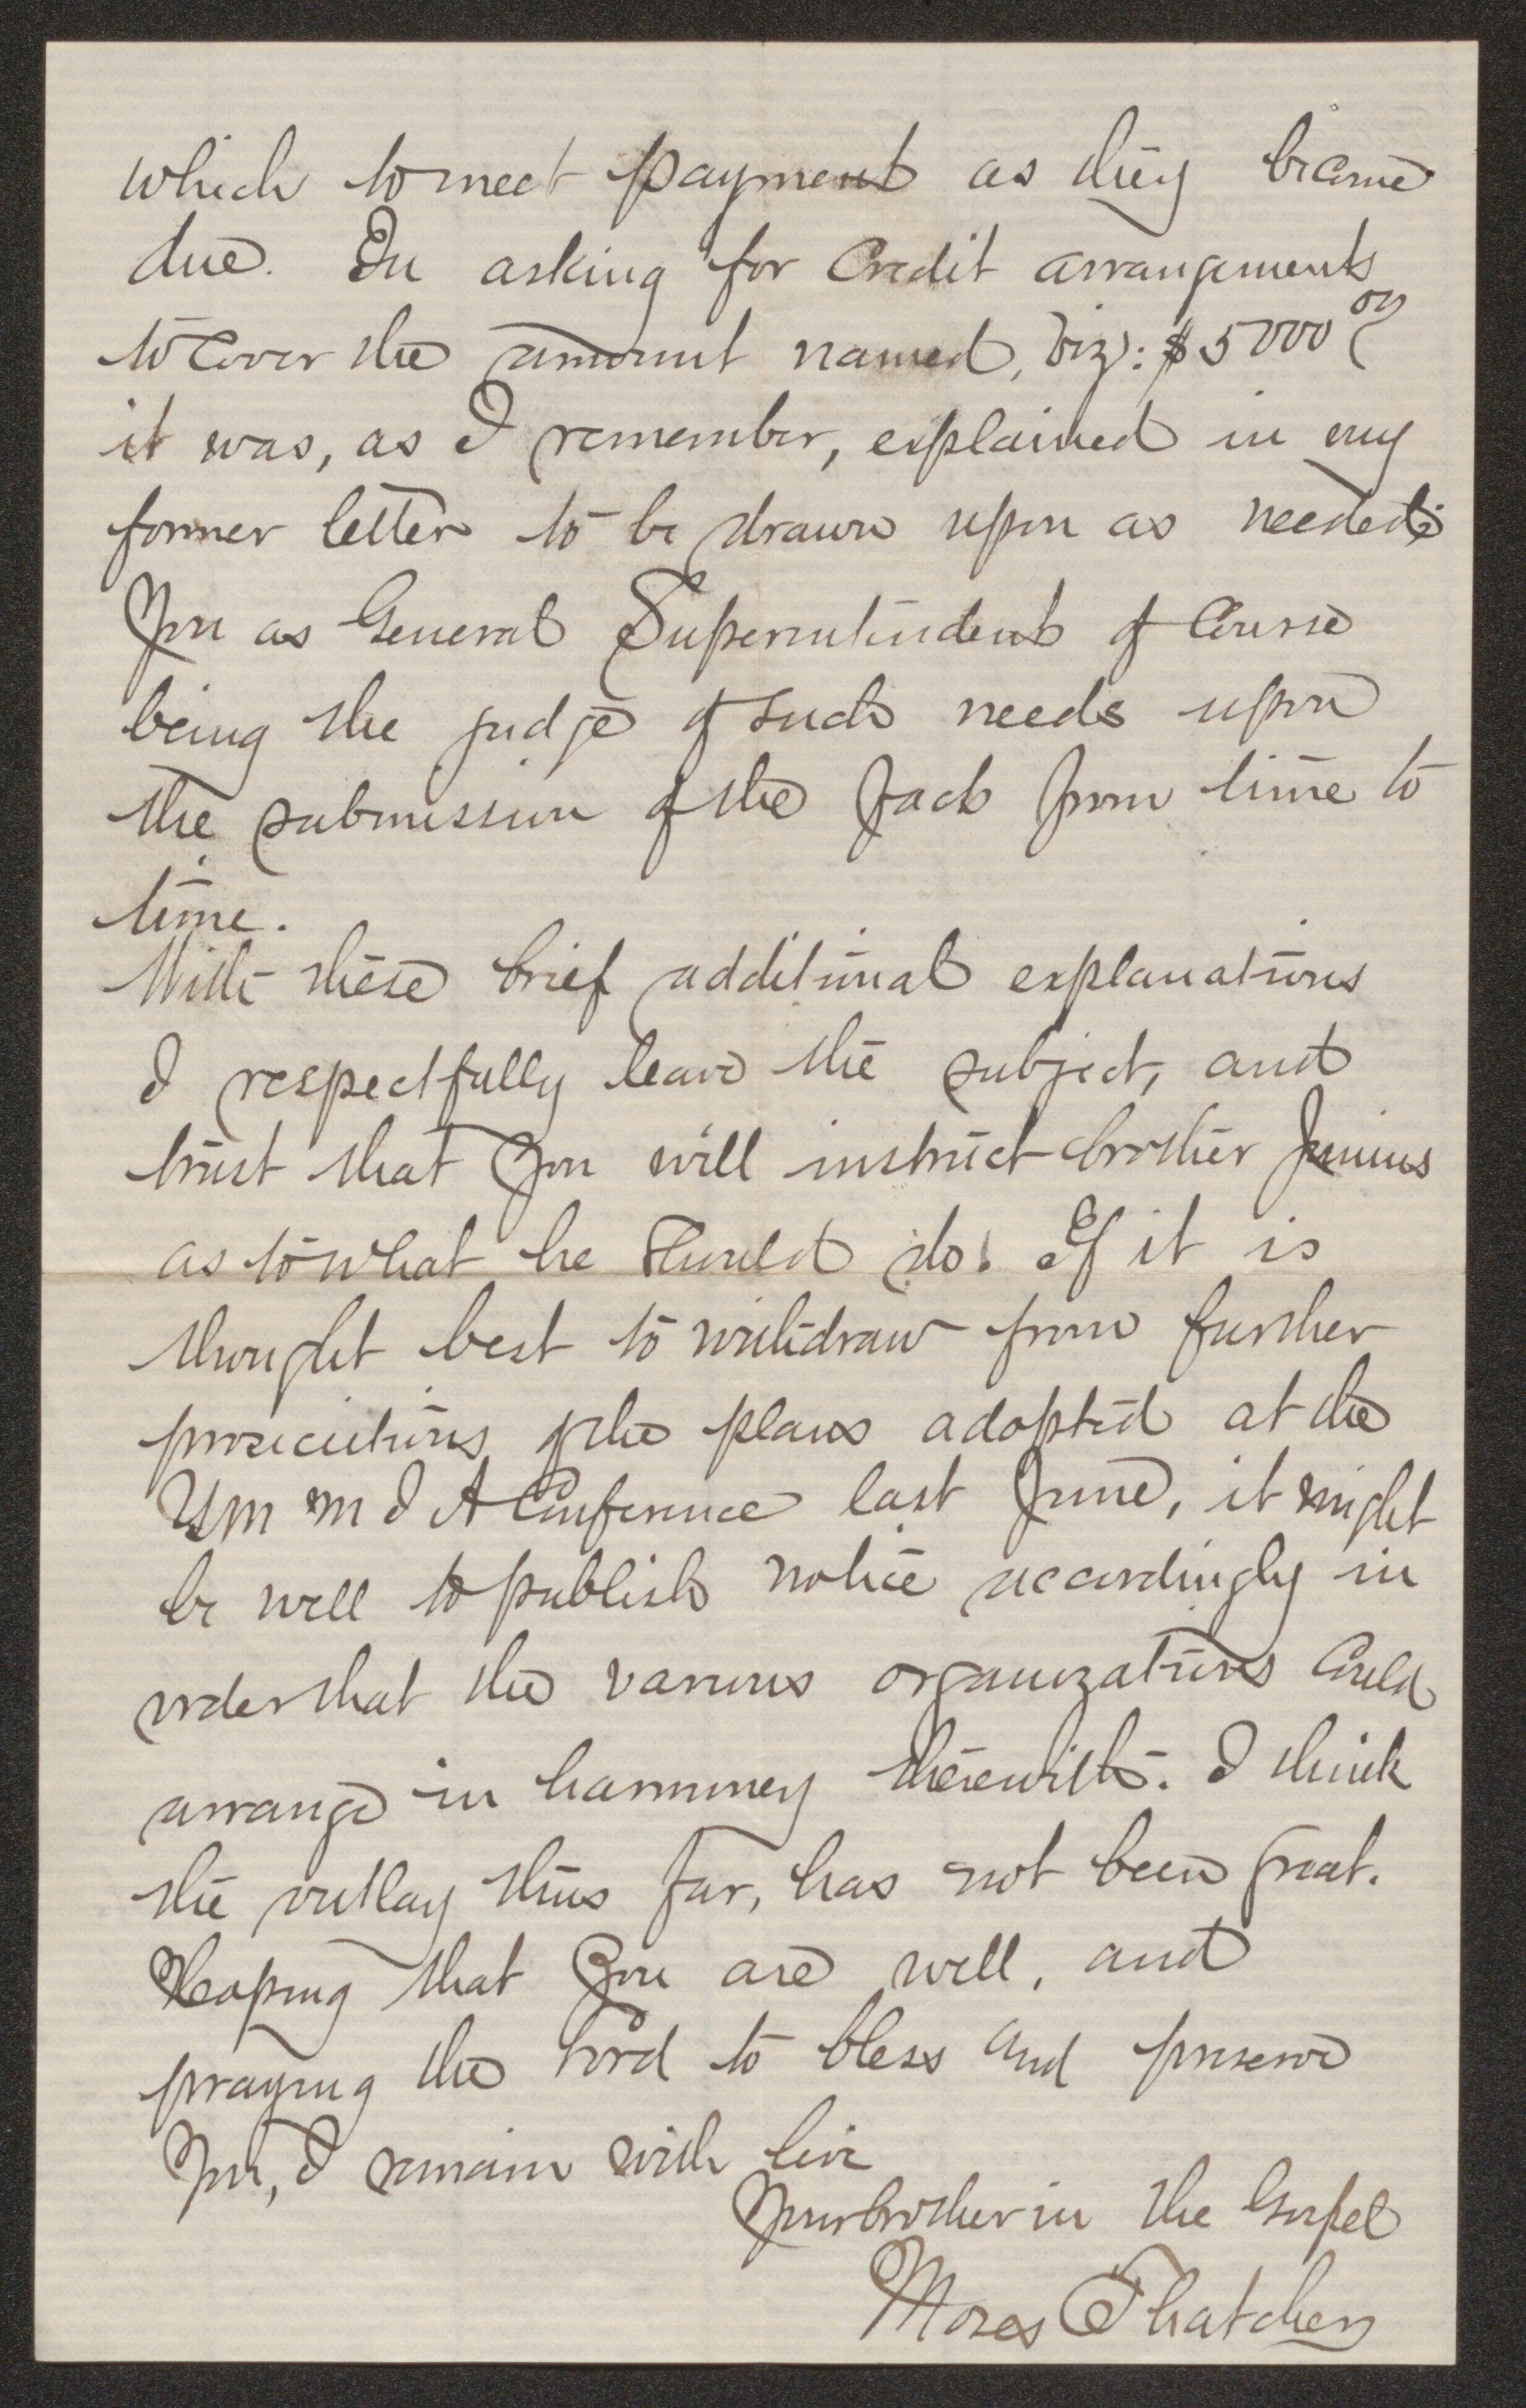 which to meet payment as they became
due. In asking for Credit arrangements
to Cover the amount named, viz: $5000 00
it was, as I remember, explained in my
former letter to be drawn upon as needed;
You as General Superintendent of Course
being the judge of such needs upon
the submission of the fact from time to
time.
With these brief additional explanations
I respectfully leave the subject, and
trust that you will instruct brother Junius
as to what he should do. If it is
thought best to withdraw from further
prosecutions of the plans adopted at the
YM M I A Conference last June, it might
be well to publish notice accordingly in
order that the various organizations Could
arrange in harmony therewith. I think
the outlay thus far, has not been great.
Hoping that you are well, and
praying the Lord to bless and preserve
You, I remain with love
Your brother in the Gospel
Moses Thatcher